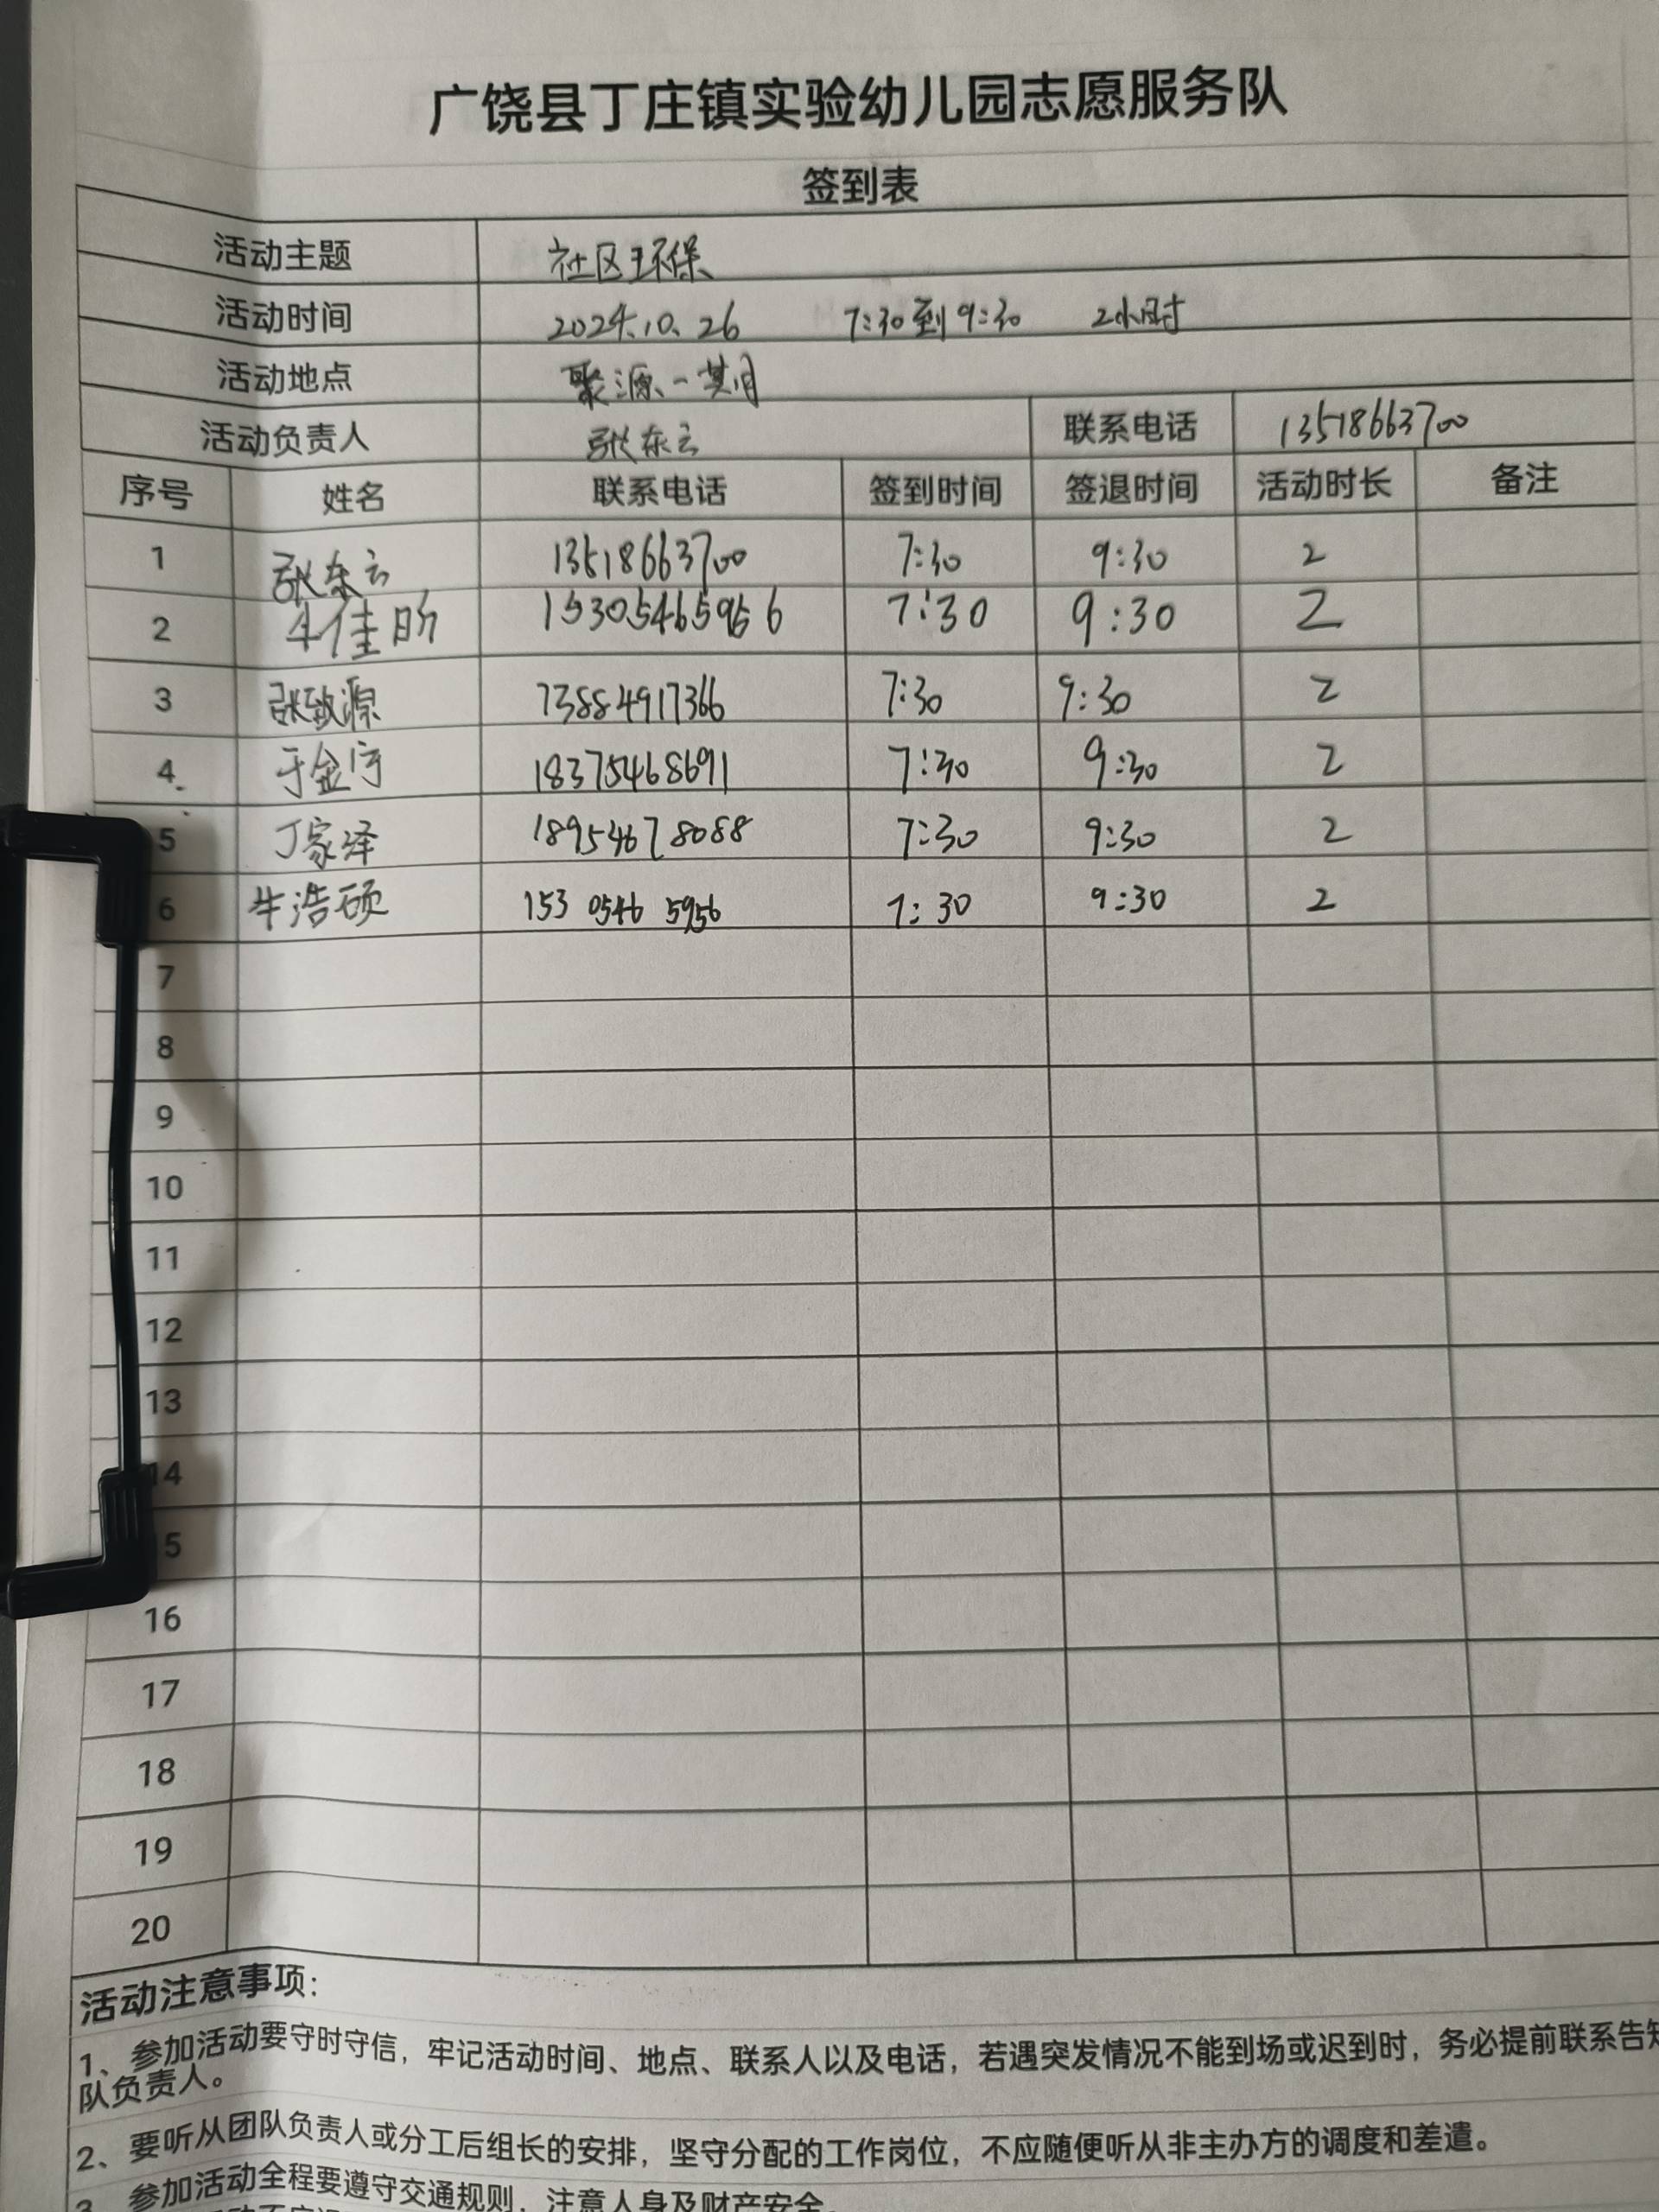 广饶县丁庄镇实验幼儿园志愿服务队
签到表
活动主题 社区环保
活动时间 2024.10.26 7:30到9:30 2小时
活动地点 聚源一期
活动负责人 张东云 联系电话 13518663700
序号 姓名 联系电话 签到时间 签退时间 活动时长 备注
1 张东云 13518663700 7:30 9:30 2
2 牛佳昕 15305465956 7:30 9:30 2
3 张致源 13884917366 7:30 9:30 2
4 于金宇 18375468691 7:30 9:30 2
5 丁家泽 18954678088 7:30 9:30 2
6 牛浩硕 153 0546 5956 7:30 9:30 2
7
8
9
10
11
12
13
14
15
16
17
18
19
20
活动注意事项：
1、参加活动要守时守信，牢记活动时间、地点、联系人以及电话，若遇突发情况不能到场或迟到时，务必提前联系告知
队负责人。
2、要听从团队负责人或分工后组长的安排，坚守分配的工作岗位，不应随便听从非主办方的调度和差遣。
3、参加活动全程要遵守交通规则，注意人身及财产安全。